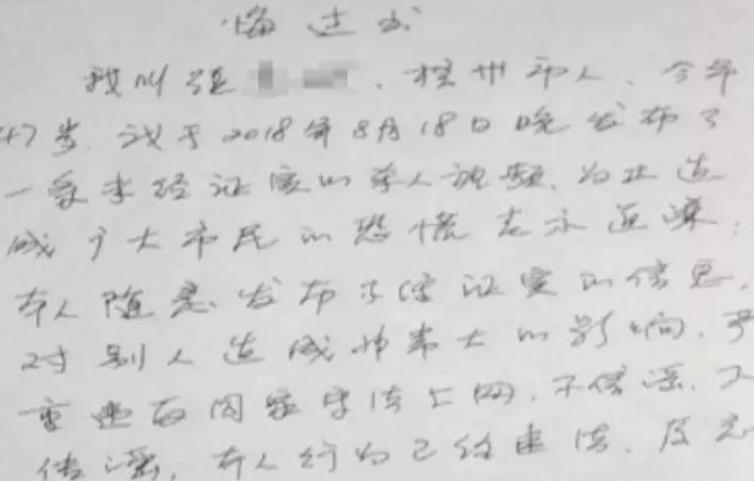 悔过书
我叫张 , 桂州市人, 今年
47岁. 我于2018年8月18日晚发布了
一条未经证实的杀人视频, 为此造
成广大市民的恐慌 表示道歉;
本人随意发布了 证实的信息,
对别人造成非常大的影响, 严
重违 国家守法上网, 不信谣, 不
传谣, 本人行为已经违法,